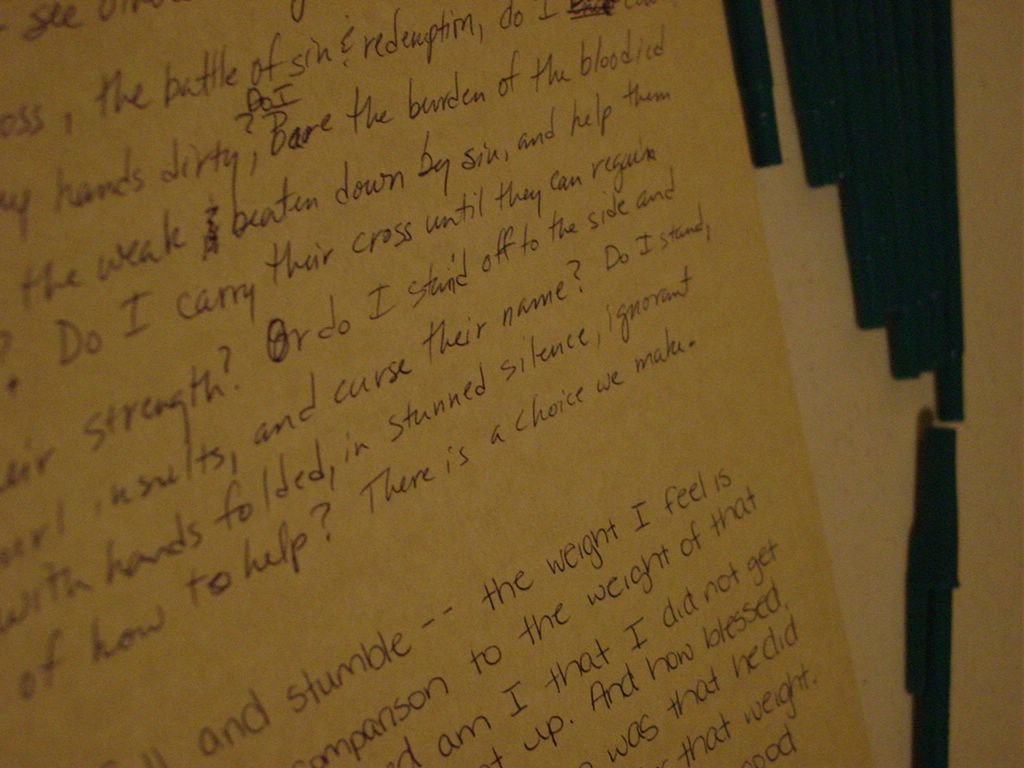 see
oss, the battle of sin & redemption, do I
my hands dirty? Do I Bare the burden of the bloodied
the weak & beaten down by sin, and help them
? Do I carry their cross until they can regain
their strength? Or do I stand off to the side and
hurl insults, and curse their name? Do I stand,
with hands folded, in stunned silence, ignorant
of how to help? There is a choice we make.
and stumble -- the weight I feel is
comparison to the weight of that
am I that I did not get
up. And how blessed,
was that he did
that weight.
good